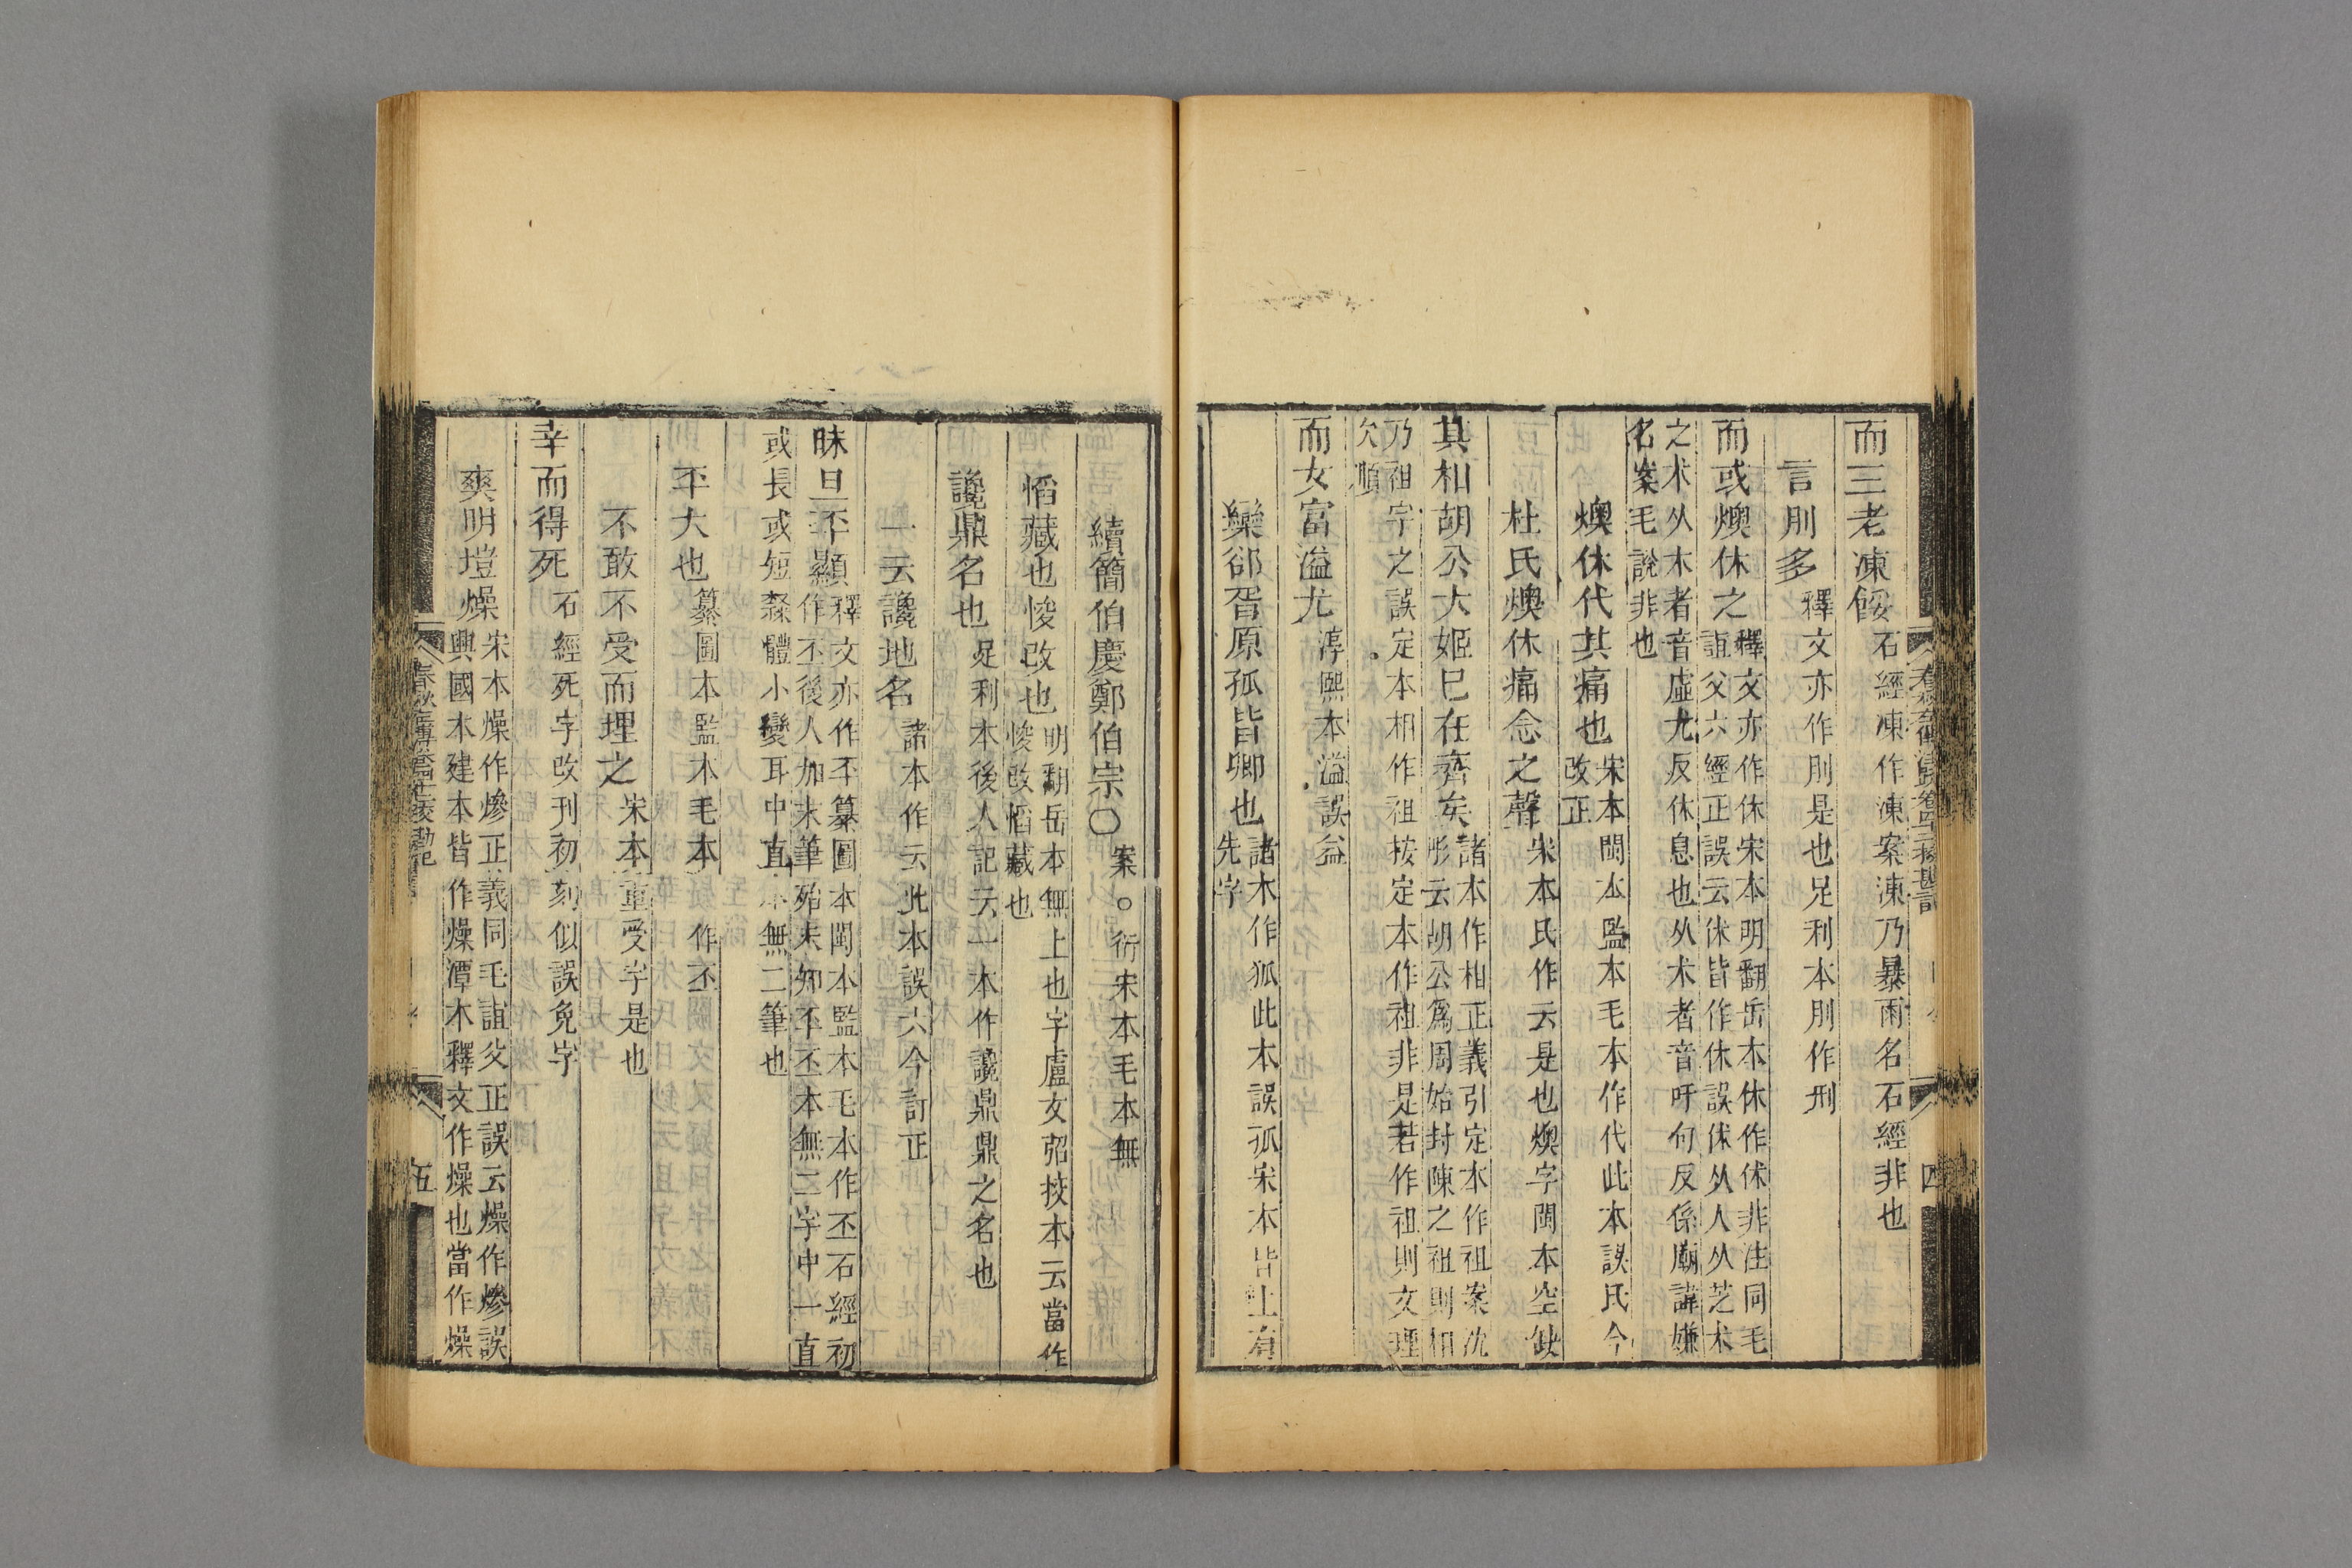 而三老凍餒石經凍作涷案涷乃暴雨名石經非也
言刖多釋文亦作刖是也足利本刖作刑
而或燠休之釋文亦作休宋本明翻岳本休作㶧非注同毛
誼父六經正誤云㶧皆作休誤㶧从人从芝术
之术从木者音虛尤反休息也从术者音吁句反係廟諱嫌
名案毛說非也
燠休代其痛也宋本閩本監本毛本作代此本誤氏今
改正
杜氏燠休痛念之聲宋本氏作云是也燠字閩本空缺
其相胡公大姬已在齊矣諸本作相正義引定本作祖案沈
彤云胡公爲周始封陳之祖則相
乃祖字之誤定本相作祖按定本作祖非是若作祖則文理
欠順
而女富溢尤淳熙本溢誤益
欒郤胥原狐皆卿也諸本作狐此本誤孤宋本皆上有
先字
續簡伯慶鄭伯宗○案○衍宋本毛本無
慆藏也悛改也明翻岳本無上也字盧文弨挍本云當作
悛改慆藏也
讒鼎名也足利本後人記云一本作讒鼎鼎之名也
一云讒地名諸本作云此本誤六今訂正
昧旦丕顯釋文亦作丕纂圖本閩本監本毛本作丕石經初
作丕後人加末筆殆未知丕丕本無二字中一直
或長或短隸體小變耳中直本無二筆也
丕大也纂圖本監本毛本作丕
不敢不受而理之宋本重受字是也
幸而得死石經死字改刊初刻似誤免字
爽明塏燥宋本燥作㷮正義同毛誼父正誤云燥作㷮誤
興國本建本皆作燥潭本釋文作燥也當作燥
四
五